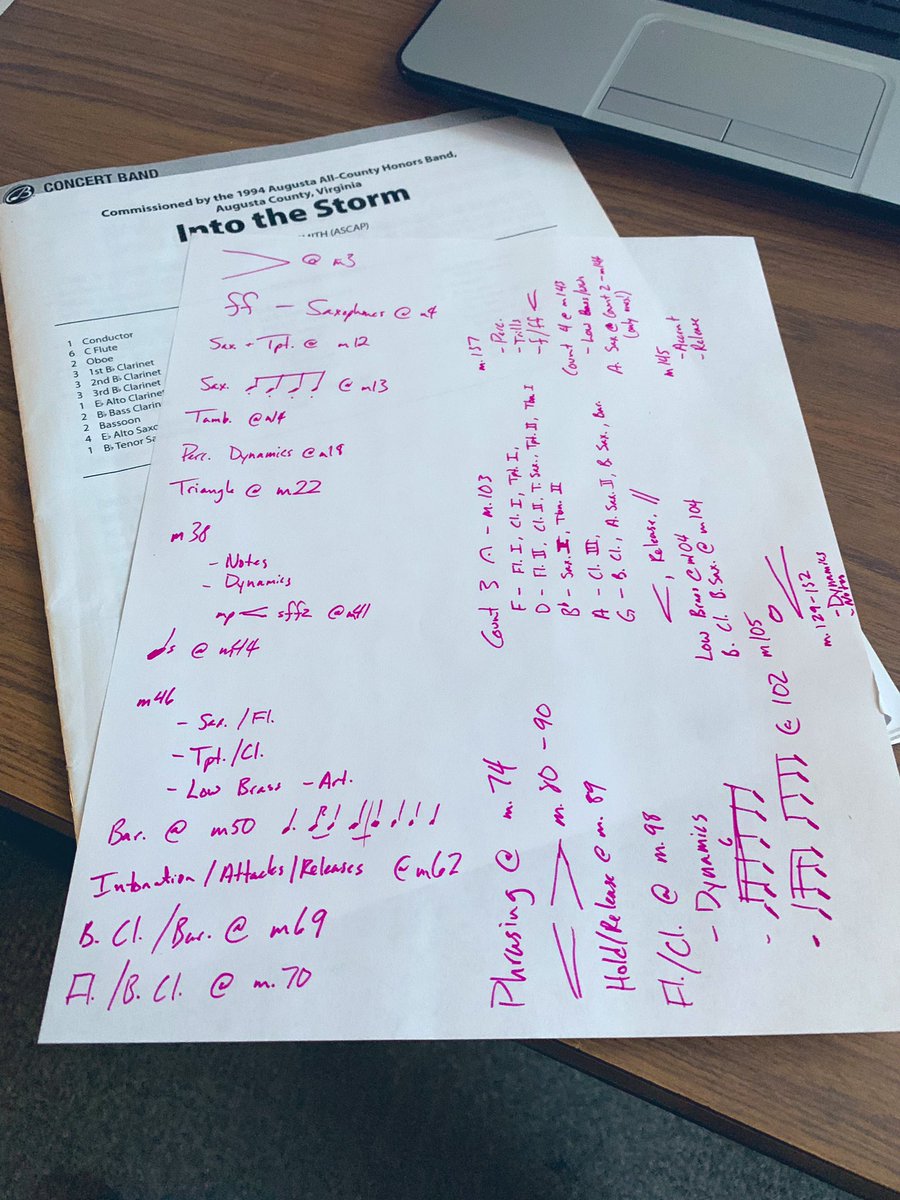 CONCERT BAND
Commissioned by the 1994 Augusta All-County Honors Band,
Augusta County, Virginia
Into the Storm
(ASCAP)
1 Conductor
6 C Flute
2 Oboe
3 1st B♭ Clarinet
3 2nd B♭ Clarinet
3 3rd B♭ Clarinet
1 E♭ Alto Clarinet
2 B♭ Bass Clarin
2 Bassoon
4 E♭ Alto Saxo
1 B♭ Tenor Sa
> @ m3
ff - Saxophones @ m4
Sax + Tpt. @ m12
Sax. @ m13
Tamb. @ m14
Perc. Dynamics @ m18
Triangle @ m22
m38
- Notes
- Dynamics
mp < sffz @ m41
@ m44
m46
- Sax. / Fl.
- Tpt. / Cl.
- Low Brass - Art.
Bar. @ m50
Intonation / Attacks / Releases @ m62
B. Cl. / Bar. @ m69
Fl. / B. Cl. @ m. 70
Phrasing @ m. 74
< > m. 80 - 90
Hold/Release @ m. 89
Fl./Cl. @ m. 98
- Dynamics
- 6
- @ 102
Count 3 𝄐 - m. 103
F - Fl. I, Cl. I, Tpt. I,
D - Fl. II, Cl. II, T. Sax., Tpt. II, Tbn. I
B♭ - Sax. I, Tbn. II
A - Cl. III,
G - B. Cl., A. Sax. II, B. Sax., Bar.
<, Release, //
Low Brass @ m104
B. Cl. B. Sax. @ m104
m. 105
o <
m. 129-132
- Dynamics
- Notes
m. 137
- Perc.
- Trills
- f/ff <
Count 4 @ m143
- Low Brass/
A. Sax @ Count 2 - m144
(only move!)
m145
- Accent
- Release